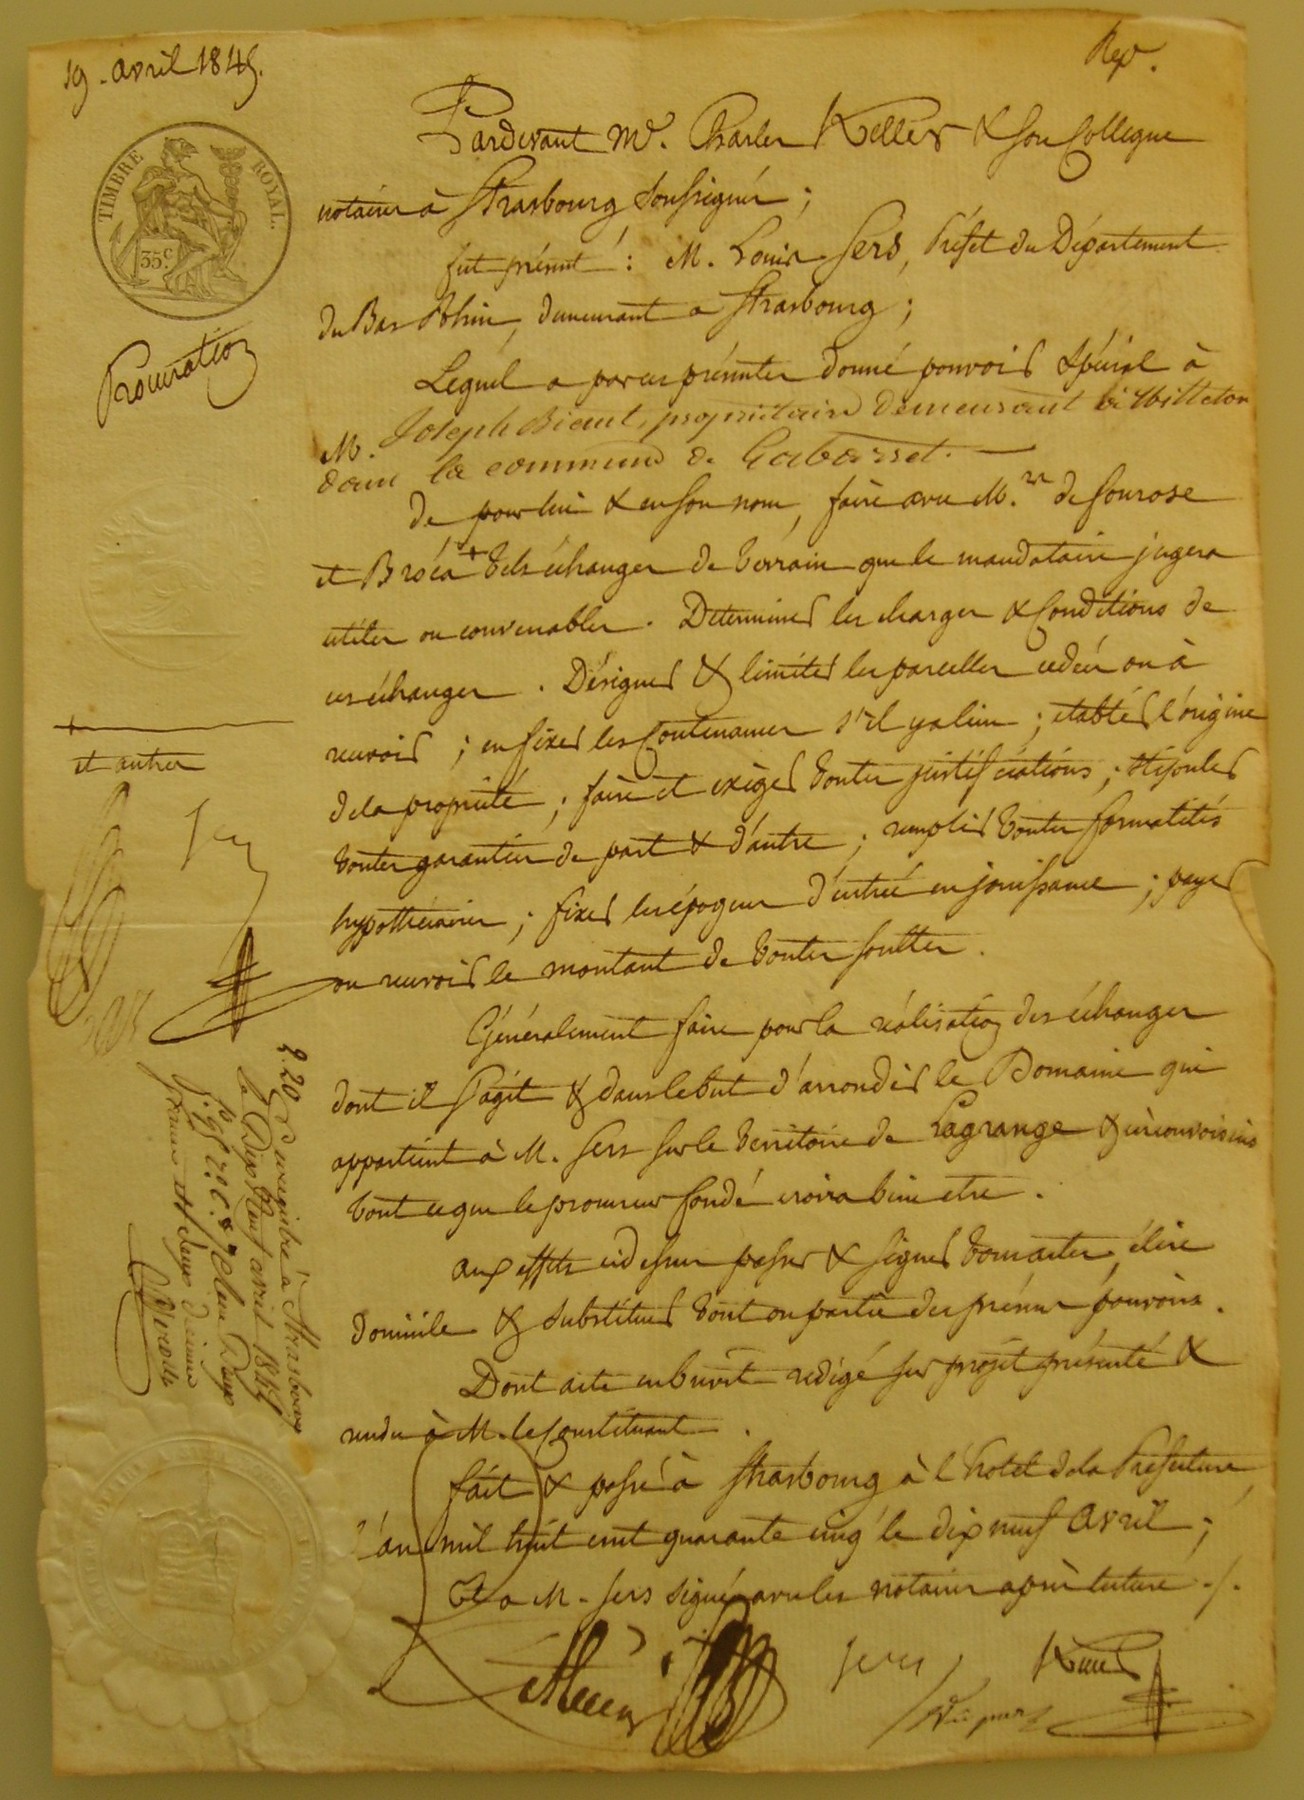 19 avril 1845.
Rep.
TIMBRE ROYAL.
35 c.
Procuration
Pardevant Me. Charles Keller & son Collegue
notaires à Strasbourg soussignés ;
fut présent : M. Louis Sers, Préfet du Département
du Bas Rhin, demeurant à Strasbourg ;
Lequel a par ces présentes donné pouvoir spécial à
M. Joseph Biaut, propriétaire demeurant à
dans la commune de Gabarret.
de pour lui & en son nom, faire avec M.rs de
et Broca + tels échanges de terrain que le mandataire jugera
utiles ou convenables. Determiner les charges & Conditions de
ces échanges. Désigner & limiter les parcelles cedées ou à
recevoir ; en fixer les Contenances s'il y a lieu ; etablir l'origine
de la propriété ; faire et exiger toutes justifications ; stipuler
toutes garanties de part & d'autre ; remplir toutes formalités
hypothécaires ; fixer les époques d'entrée en jouissance ; payer
ou recevoir le montant de toutes soultes.
+
et autres
Sers
Généralement faire pour la réalisation des échanges
dont il s'agit & dans le but d'arrondir le Domaine qui
appartient à M. Sers sur le territoire de Lagrange & circonvoisins
tout ce que le procureur fondé croira bien etre.
aux effets ci dessus passer & signer tous actes, élire
domicile & substituer tout ou partie des présens pouvoirs.
Dont acte en brevet redigé sur projet présenté &
rendu à M. le Constituant.
fait & passé à Strasbourg à l'hotel de la Préfecture
l'an mil huit cent quarante cinq le dix neuf avril ;
Et a M. Sers signé avec les notaires après lecture ./.
2.20 Enregistré à Strasbourg
le Dix Neuf avril 1845
francs et deux décimes
Sers
Keller